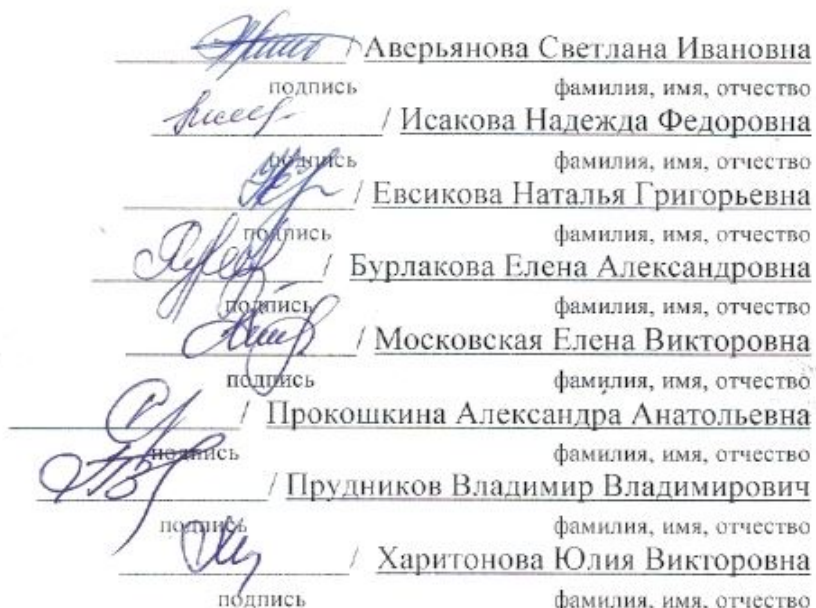 / Аверьянова Светлана Ивановна
подпись фамилия, имя, отчество
/ Исакова Надежда Федоровна
подпись фамилия, имя, отчество
/ Евсикова Наталья Григорьевна
подпись фамилия, имя, отчество
/ Бурлакова Елена Александровна
подпись фамилия, имя, отчество
/ Московская Елена Викторовна
подпись фамилия, имя, отчество
/ Прокошкина Александра Анатольевна
подпись фамилия, имя, отчество
/ Прудников Владимир Владимирович
подпись фамилия, имя, отчество
/ Харитонова Юлия Викторовна
подпись фамилия, имя, отчество